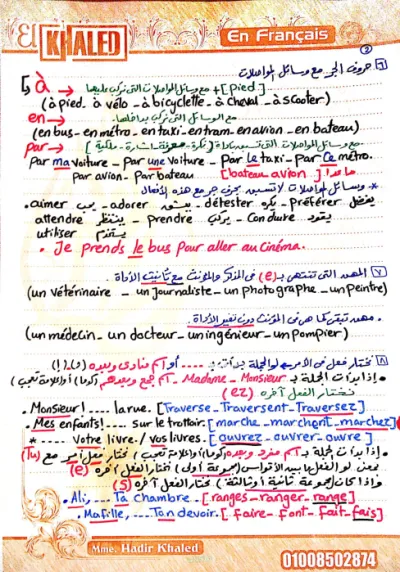 El KHALED
En Français
②
٦ حروف الجر مع وسائل المواصلات
à → [pied] + مع وسائل المواصلات التى نركب عليها
(à pied - à vélo - à bicyclette - à cheval - à scooter)
en → مع الوسائل التى نركب بداخلها.
(en bus - en métro - en taxi - en tram - en avion - en bateau)
par → مع وسائل المواصلات التى
par ma voiture - par une voiture - par le taxi - par ce métro.
par avion - par bateau [bateau - avion] ماعدا
* وسائل المواصلات لا تسبق بحرف جر مع هذه الأفعال
. aimer يحب - adorer - détester يكره - préférer يفضل
attendre ينتظر - prendre يركب - Conduire يقود
utiliser يستخدم
. Je prends le bus pour aller au cinéma.
٧ المهن التى تنتهى بـ (e) فى المذكر والمؤنث مع تأنيث الأداة
(un vétérinaire - un journaliste - un photographe - un peintre)
. مهن تبقى كما هى فى المؤنث دون تغيير الأداة.
(un médecin - un docteur - un ingénieur - un pompier)
٨ نختار فعل فى الأمر
. إذا بدأت الجملة بـ Madame - Monsieur
نختار الفعل آخره (ez)
. Monsieur! .... la rue. [Traverse - Traversent - Traversez]
. Mes enfants! .... sur le trottoir. [marche - marchent - marchez]
* .... Votre livre. / vos livres. [ouvrez - ouvrer - ouvre]
. إذا بدأت الجملة بـ اسم مفرد نختار فعل أمر مع (Tu)
بمعنى لو الفعل ما بين الأقواس (مجموعة أولى) اختار الفعل آخره (e)
وإذا كان (مجموعة ثانية أو ثالثة) نختار الفعل آخره (s)
. Ali, .... Ta chambre. [ranges - ranger - range]
. Ma fille, .... Ton devoir. [faire - font - fait - fais]
Mme. Hadir Khaled
01008502874